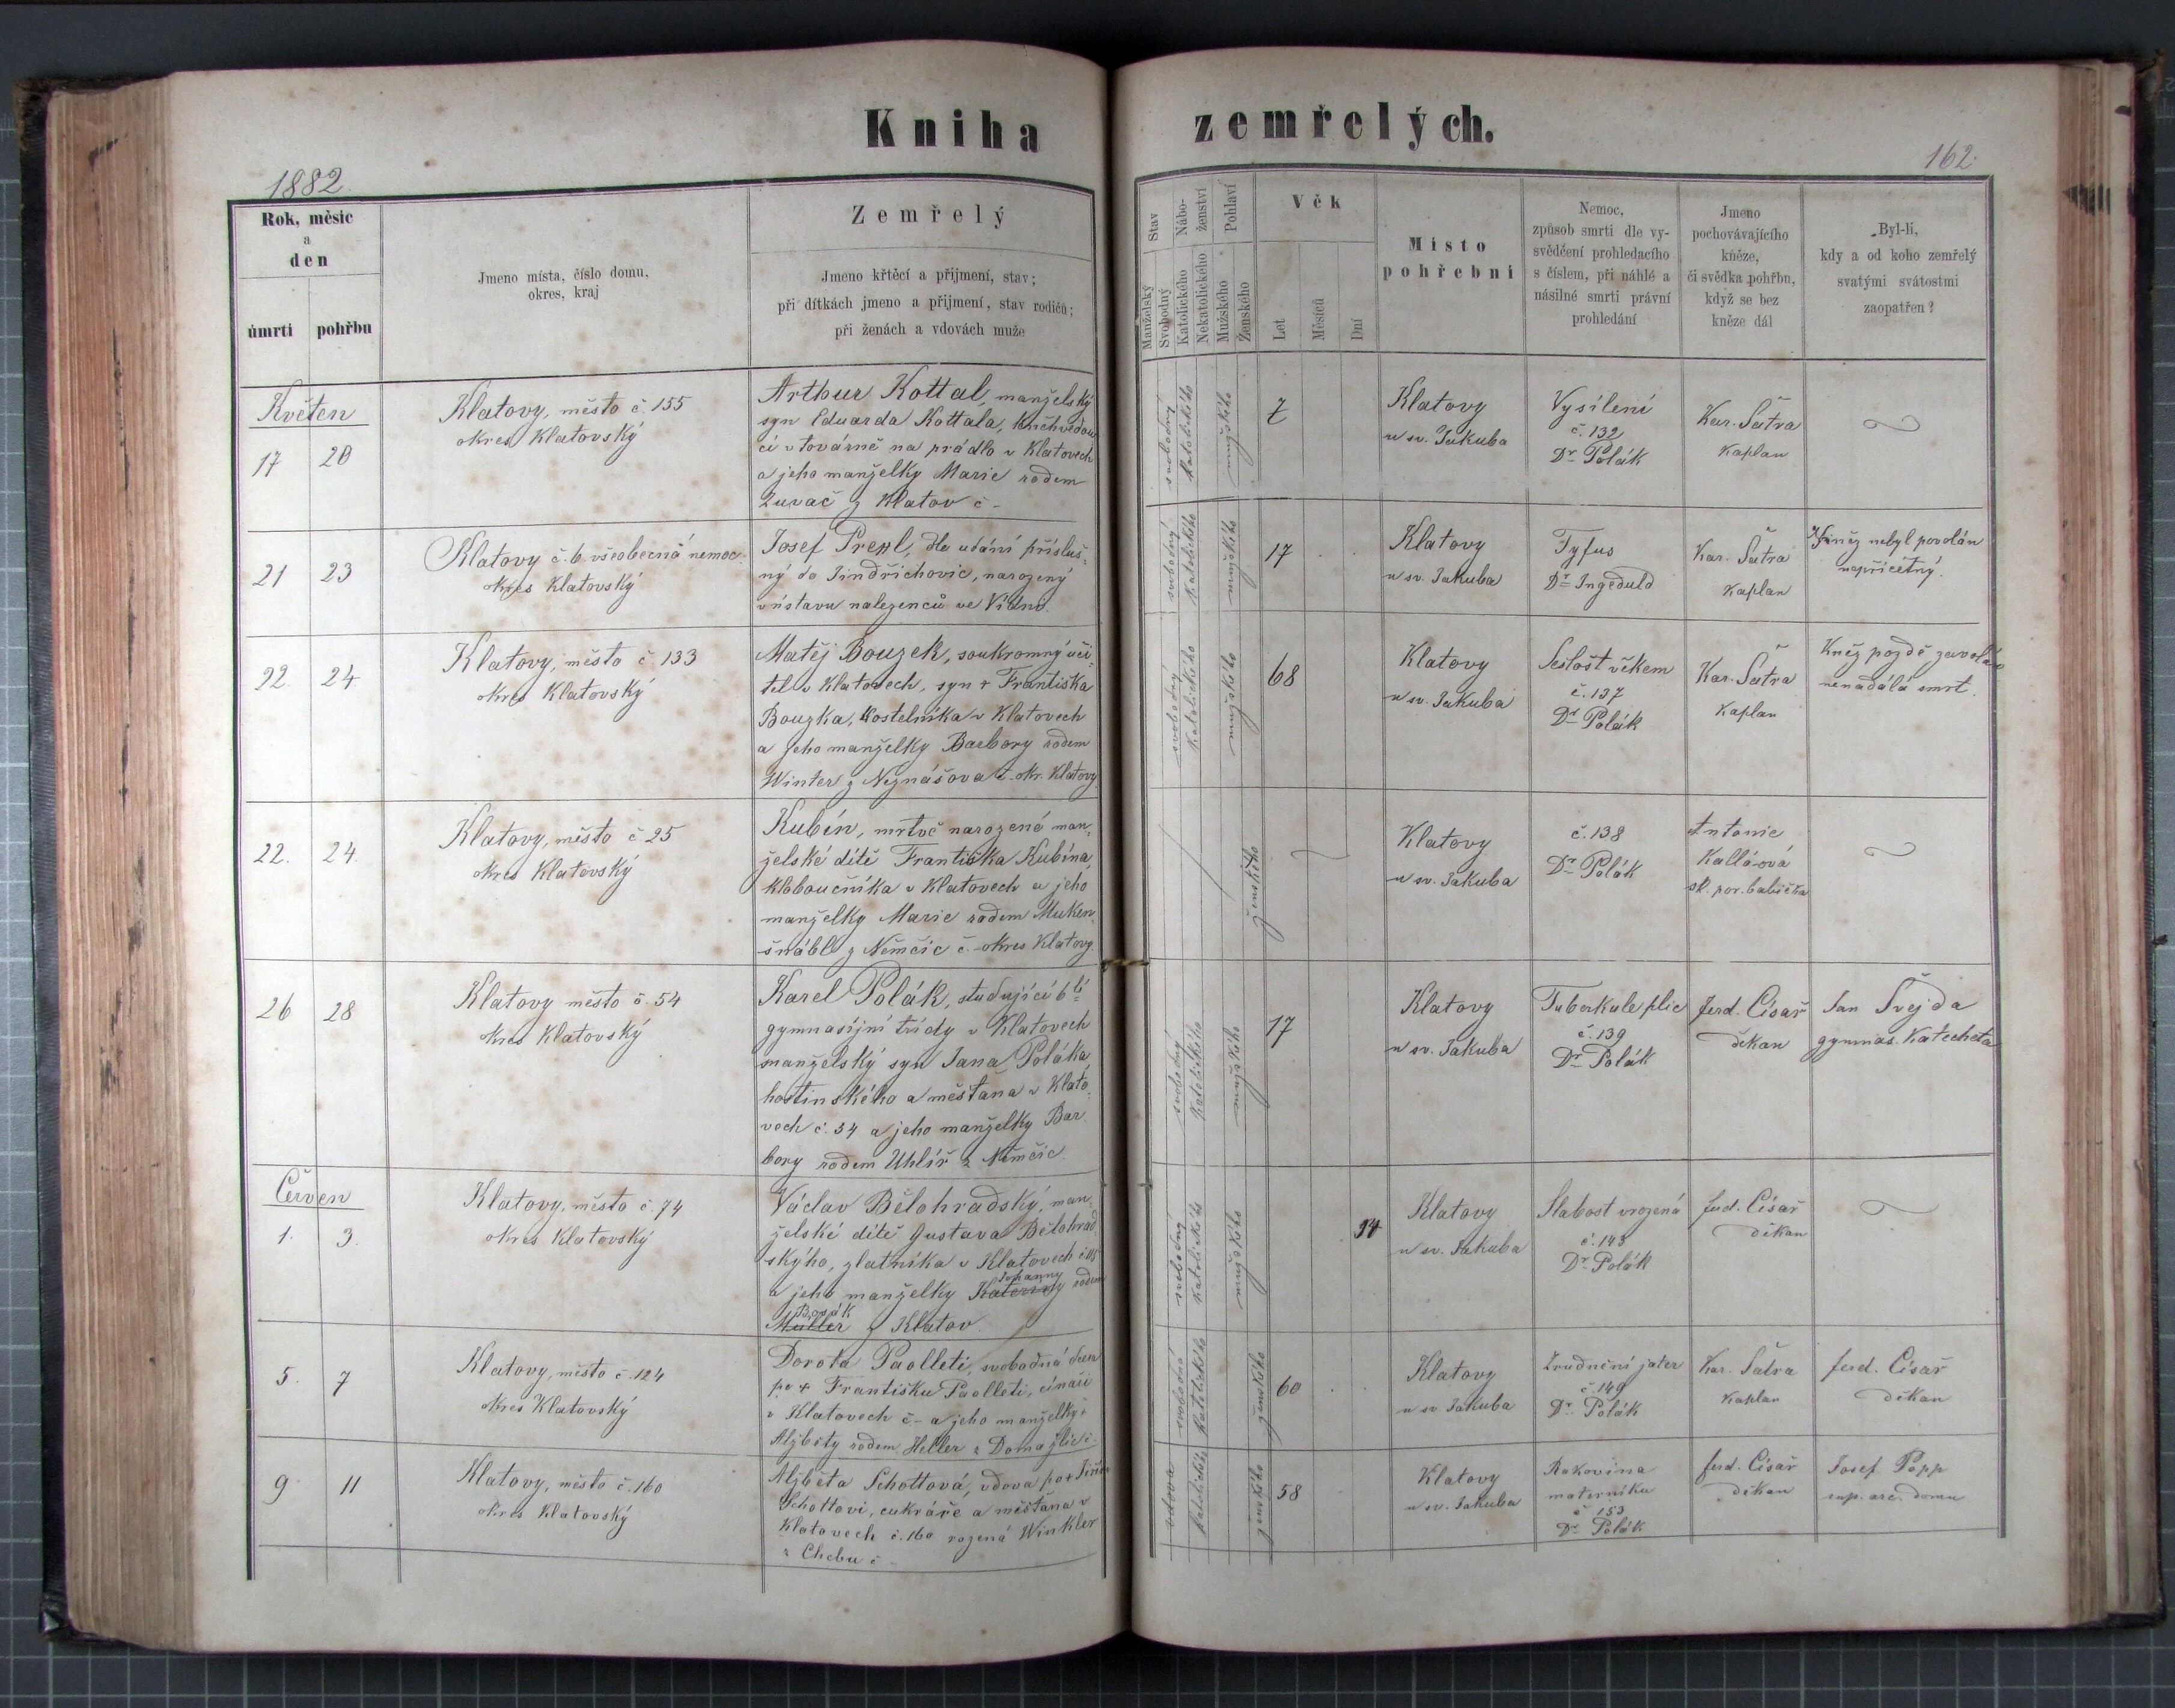 Kniha zemřelých.
1882
162
Rok, měsíc
a
den
úmrtí
pohřbu
Jmeno místa, číslo domu,
okres, kraj
Zemřelý
Jmeno křtěcí a přijmení, stav;
při dítkách jmeno a přijmení, stav rodičů;
při ženách a vdovách muže
Stav
Manželský
Svobodný
Nábo-
ženství
Katolického
Nekatolického
Pohlaví
Mužského
Ženského
Věk
Let
Měsíců
Dní
Místo
pohřební
Nemoc,
způsob smrti dle vy-
svědčení prohledacího
s číslem, při náhlé a
násilné smrti právní
prohledání
Jmeno
pochovávajícího
kněze,
či svědka pohřbu,
když se bez
kněze dál
Byl-li,
kdy a od koho zemřelý
svatými svátostmi
zaopatřen?
Květen
17
20
Klatovy, město č. 155
okres Klatovský
Arthur Kottal, manželský
syn Eduarda Kottala, knihvedou
cí v továrně na prádlo v Klatovech
a jeho manželky Marie rodem
z Klatov č -
svobodný
katolického
mužského
7
Klatovy
u sv. Jakuba
Vysílení
č. 132
Dr Polák
Kar. Šátra
Kaplan
21
23
Klatovy č. 6. všeobecná nemoc.
okres Klatovský
Josef dle udání přísluš-
ný do Jindřichovic, narozený
v ústavu nalezenců ve Vídni.
svobodný
katolického
mužského
17
Klatovy
u sv. Jakuba
Tyfus
Dr Ingeduld
Kar. Šátra
Kaplan
Kněz nebyl povolán
nepříčetný.
22.
24
Klatovy, město č. 133
okres Klatovský
Matěj Bouzek, soukromný uči-
tel v Klatovech, syn + Františka
Bouzka, kostelníka v Klatovech
a jeho manželky Barbory rodem
Winter z Neznášova č. okr. Klatovy
svobodný
katolického
mužského
68
Klatovy
u sv. Jakuba
Sešlost věkem
č. 137
Dr Polák
Kar. Šátra
Kaplan
Kněz pozdě zavolán
nenadálá smrt.
22.
24.
Klatovy, město č 25
okres Klatovský
Kubín, mrtvě narozené man-
želské dítě Františka Kubína,
kloboučníka v Klatovech a jeho
manželky Marie rodem Muken-
šnábl z Němčic č. okres Klatovy.
ženského
Klatovy
u sv. Jakuba
č. 138
Dr Polák
Antonie
sk. por. babička
26
28
Klatovy město č. 54
okres Klatovský
Karel Polák, studující 6té
gymnasijní třídy v Klatovech
manželský syn Jana Poláka
hostinského a měšťana v Klato-
vech č. 54 a jeho manželky Bar-
bory rodem Uhlíř z Němčic.
svobodný
katolického
mužského
17
Klatovy
u sv. Jakuba
Tuberkule plic
č. 139
Dr Polák
Ferd. Císař
děkan
Jan Švejda
gymnas. Katecheta
Červen
1.
3.
Klatovy, město č. 74
okres Klatovský
Václav Bělohradský, man-
želské dítě Gustava Bělohrad-
ského, zlatníka v Klatovech č 115
Johanny
a jeho manželky Kateřiny rodem
Bosák
Müller z Klatov
svobodný
katolického
mužského
14
Klatovy
u sv. Jakuba
Slabost vrozená
č. 143
Dr Polák
Ferd. Císař
děkan
5.
7
Klatovy, město č. 124
okres Klatovský
Dorota Paolleti, svobodná dcera
po + Františku Paolleti, cínaři
v Klatovech č - a jeho manželky +
Alžběty rodem Heller z Domažlic č.
svobodná
katolického
ženského
60
Klatovy
u sv. Jakuba
Zrudnění jater
č. 149
Dr Polák
Kar. Šátra
Kaplan
Ferd. Císař
děkan
9
11
Klatovy, město č. 160
okres Klatovský
Alžběta Schottová, vdova po +
Schottovi, cukráře a měšťana v
Klatovech č. 160 rozená Winkler
z Chebu č -
vdova
katolického
ženského
58
Klatovy
u sv. Jakuba
Rakovina
materníku
č 153
Dr Polák
Ferd. Císař
děkan
Josef Popp
sup. arc. domu